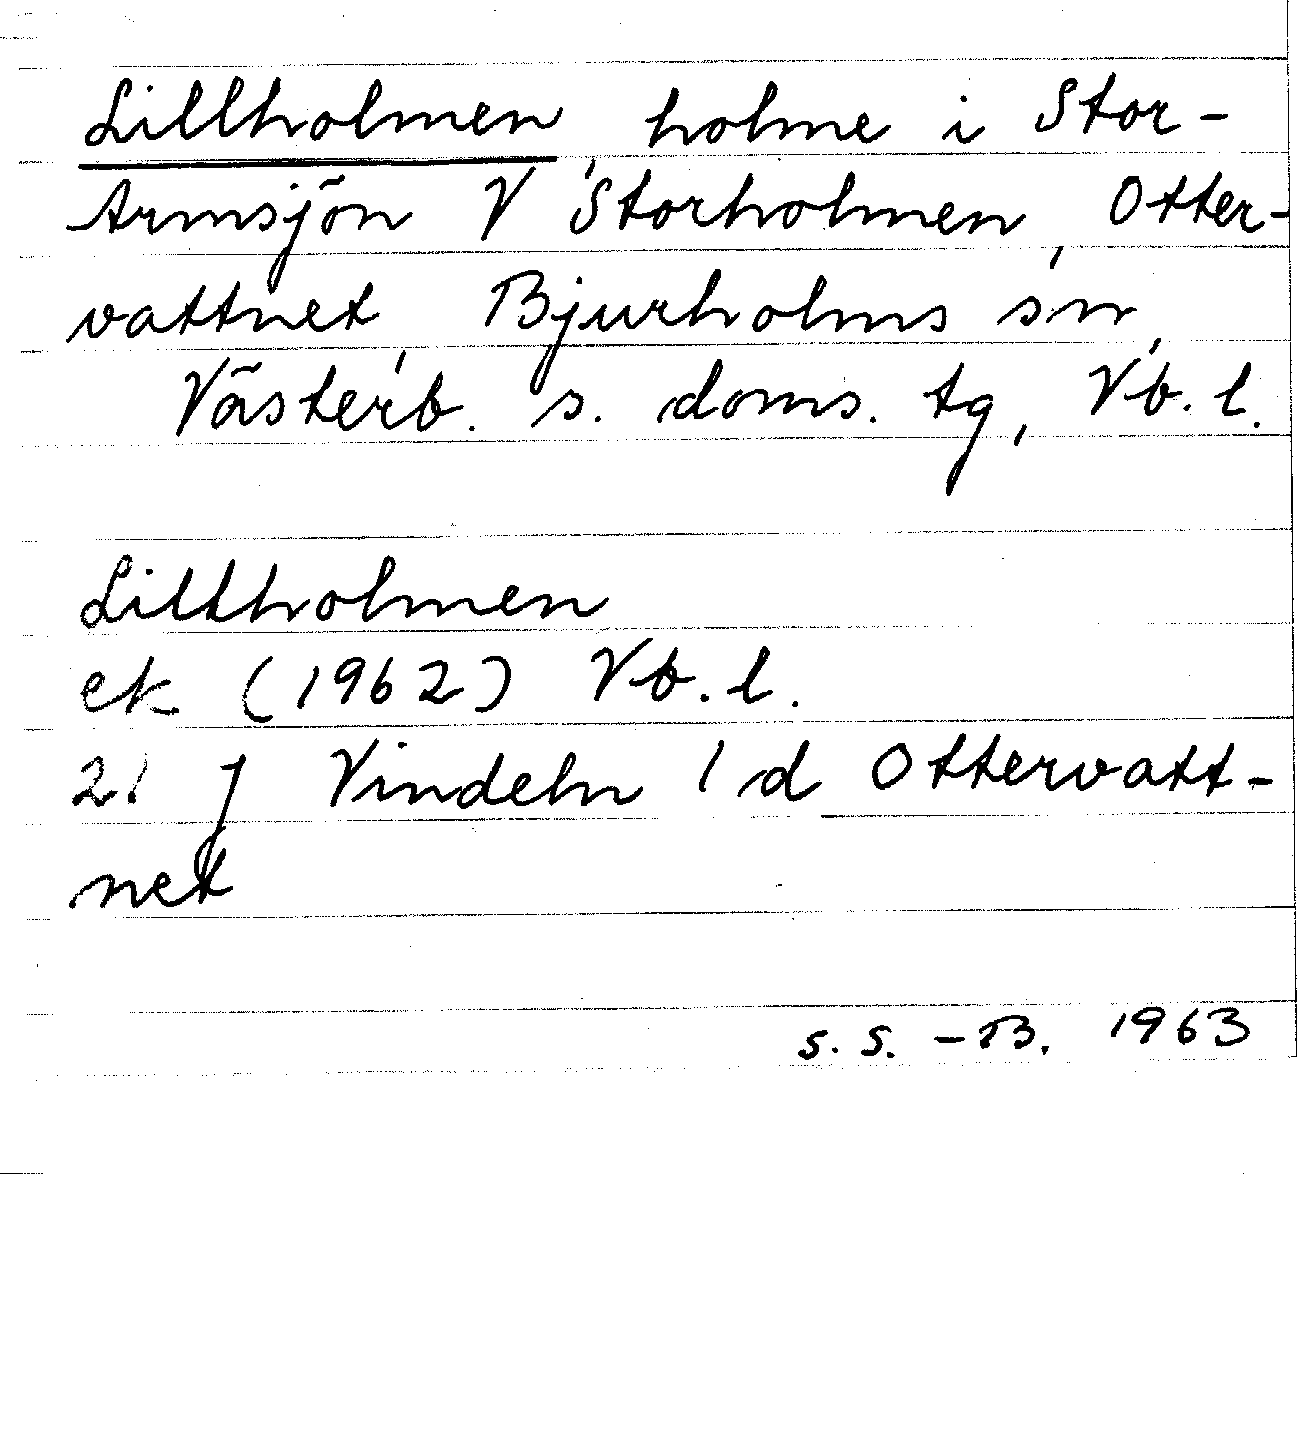 Lillholmen, holme i Stor-
Armsjön V Storholmen, Otter-
vattnet, Bjurholms sn,
Västerb. s. doms. tg, Vb. l.
Lillholmen
ek (1962) Vb. l.
21 J Vindeln 1 d Ottervatt-
net
S. S. -B. 1963